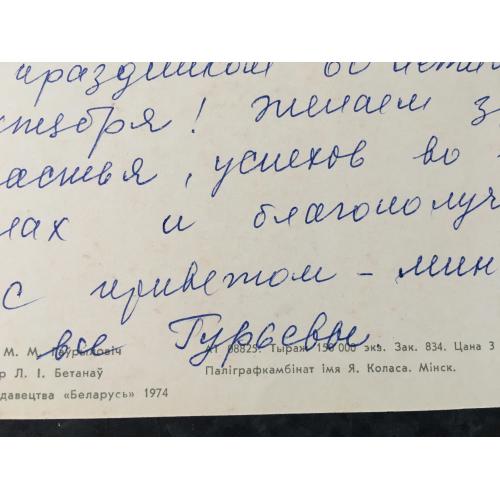 праздником 60 летия
ктября! Желаем з
астья, успехов во
лах и благополуч
с приветом – мин
все Гурьевы
М. М.
р Л. І. Бетанаў
давецтва «Беларусь» 1974
АТ 08825. Тыраж 150 000 экз. Зак. 834. Цана 3
Паліграфкамбінат імя Я. Коласа. Мінск.